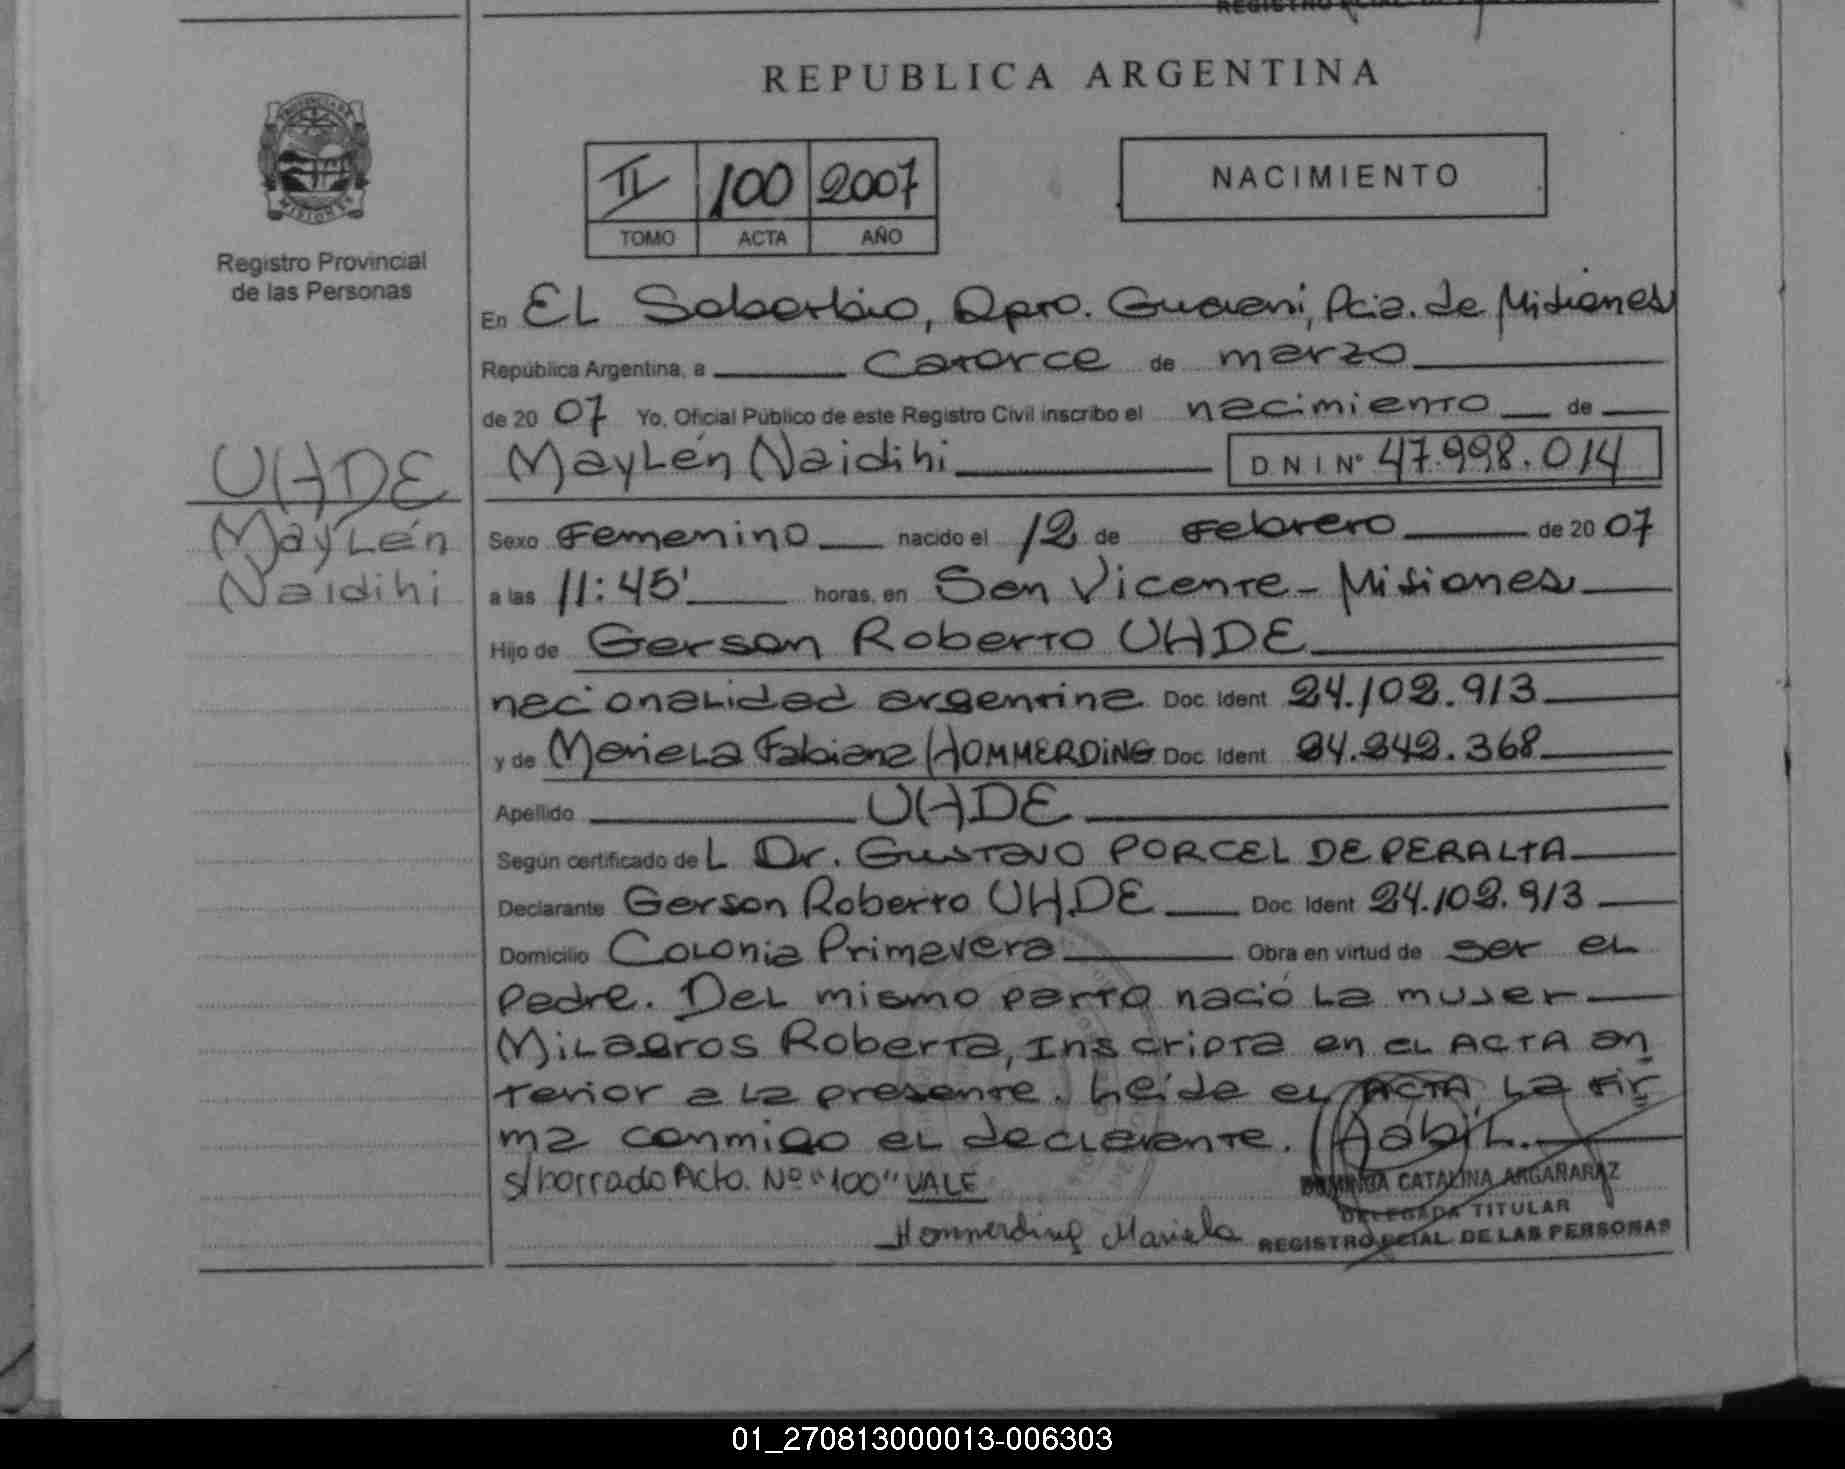 REPUBLICA ARGENTINA
PROVINCIA DE
MISIONES
Registro Provincial
de las Personas
II 100 2007
TOMO ACTA AÑO
NACIMIENTO
En EL Soberbio, Dpto. Guaraní, Pcia. de Misiones
República Argentina, a catorce de marzo
de 20 07 Yo, Oficial Público de este Registro Civil inscribo el nacimiento de
Maylén Naidihi D N I Nº 47.998.014
UHDE
Maylén
Naidihi
Sexo Femenino nacido el 12 de Febrero de 20 07
a las 11:45' horas, en San Vicente - Misiones
Hijo de Gerson Roberto UHDE
nacionalidad argentina Doc. Ident 24.102.913
y de Mariela Fabiana HOMMERDING Doc. Ident 24.242.368
Apellido UHDE
Según certificado de L Dr. Gustavo PORCEL DE PERALTA
Declarante Gerson Roberto UHDE Doc. Ident 24.102.913
Domicilio Colonia Primavera Obra en virtud de ser el
padre. Del mismo parto nació la mujer
Milagros Roberta, Inscripta en el ACTA an
terior a la presente. Leída el ACTA, La fir
ma conmigo el declarante.
s/borrado Acta. Nº "100" VALE
Hommerding Mariela
CATALINA ARGAÑARAZ
DELEGADA TITULAR
REGISTRO PCIAL. DE LAS PERSONAS
01_270813000013-006303